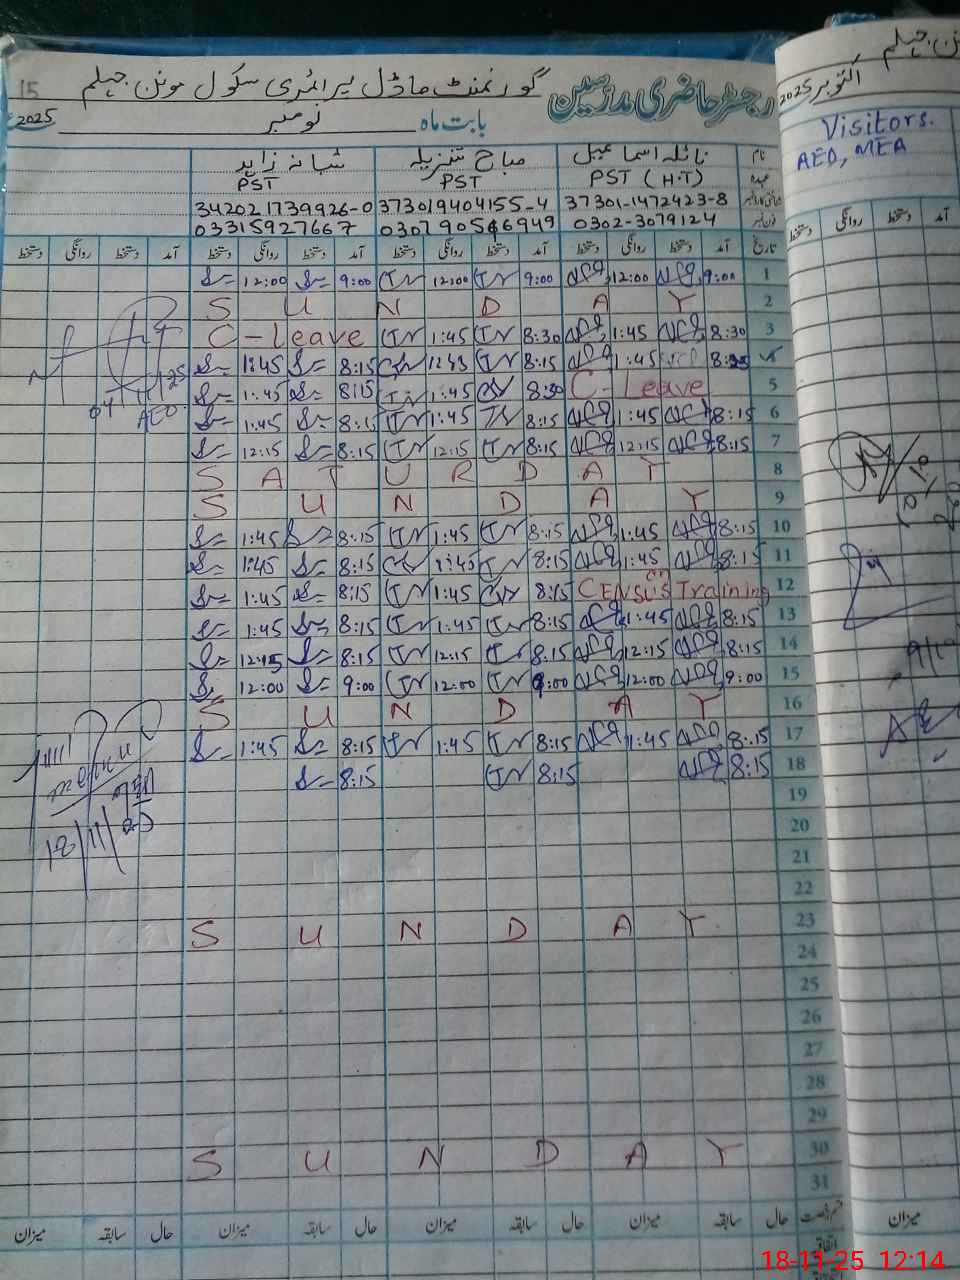 15
گورنمنٹ ماڈل پرائمری سکول مونن جہلم
رجسٹر حاضری مدرسین
بابت ماہ نومبر 2025
نام نائلہ اسماعیل صباح تنزیلہ شبانہ زاہد
عہدہ PST (H.T) PST PST
37301-1472423-8 373019404155-4 342021739926-0
0302-3079124 03079056949 03315927667
تاریخ آمد دستخط روانگی دستخط آمد دستخط روانگی دستخط آمد دستخط روانگی دستخط آمد دستخط روانگی دستخط
1 9:00 12:00 9:00 12:00 9:00 12:00
2 SUNDAY
3 8:30 1:45 8:30 1:45 C-Leave
4 1:45 8:15 8:15 1:45
5 C-Leave 8:30 1:45 8:15 1:45
6 8:15 1:45 8:15 1:45 8:15 1:45
7 8:15 12:15 8:15 12:15 8:15 12:15
8 SATURDAY
9 SUNDAY
10 8:15 1:45 8:15 1:45 8:15 1:45
11 8:15 1:45 8:15 1:45 8:15 1:45
12 CENSUS Training 8:15 1:45 8:15 1:45
13 8:15 1:45 8:15 1:45 8:15 1:45
14 8:15 12:15 8:15 12:15 8:15 12:15
15 9:00 12:00 9:00 12:00 9:00 12:00
16 SUNDAY
17 8:15 1:45 8:15 1:45 8:15 1:45
18 8:15 8:15 8:15
19
20
21
22
23 SUNDAY
24
25
26
27
28
29
30 SUNDAY
31
حال سابقہ میزان حال سابقہ میزان حال سابقہ میزان حال سابقہ میزان
اتفاقیہ
AEO
MEA
18/11/25
مونن جہلم
اکتوبر 2025
Visitors.
AEO, MEA
آمد دستخط روانگی دستخط
میزان
18-11-25 12:14